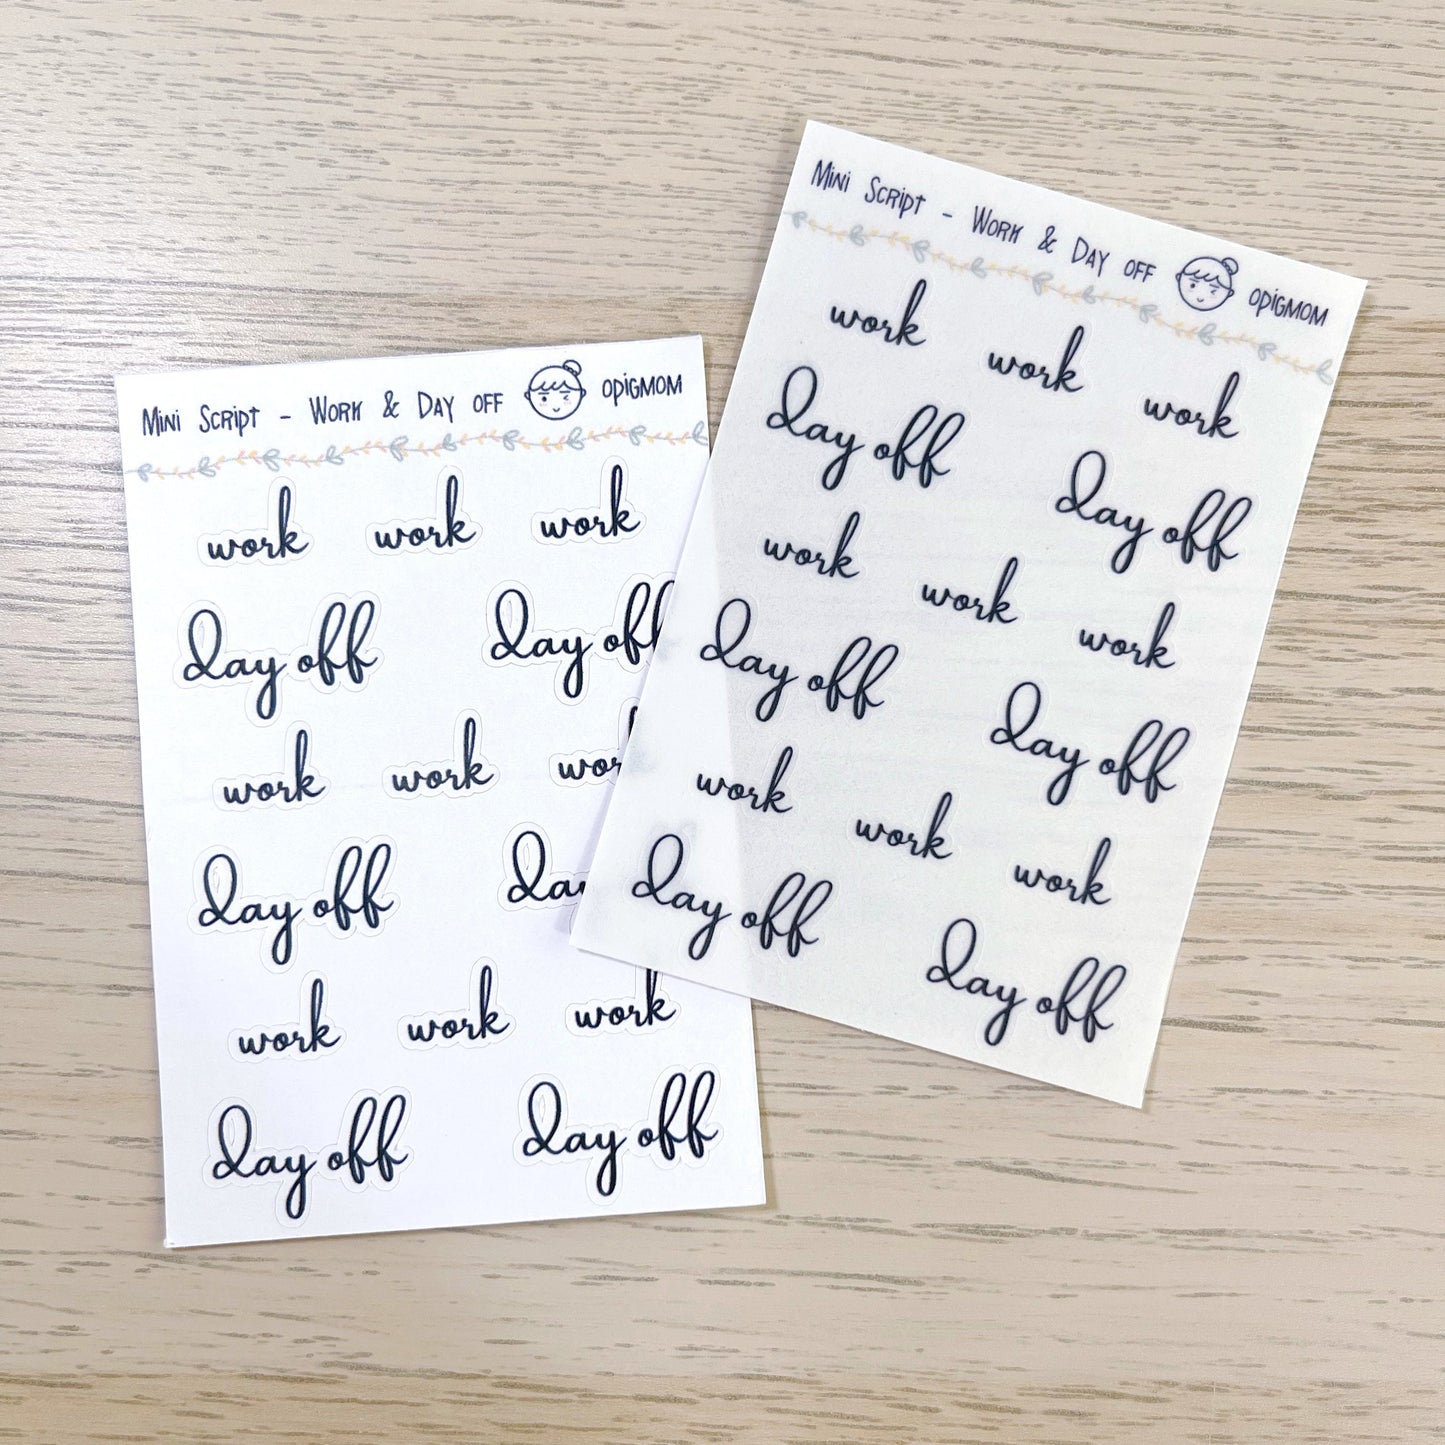 Mini Script - Work & Day off OPIGMOM
work work work
day off day off
work work
day off
work work work
day off day off
Mini Script - Work & Day off OPIGMOM
work work work
day off day off
work work work
day off day off
work work work
day off day off